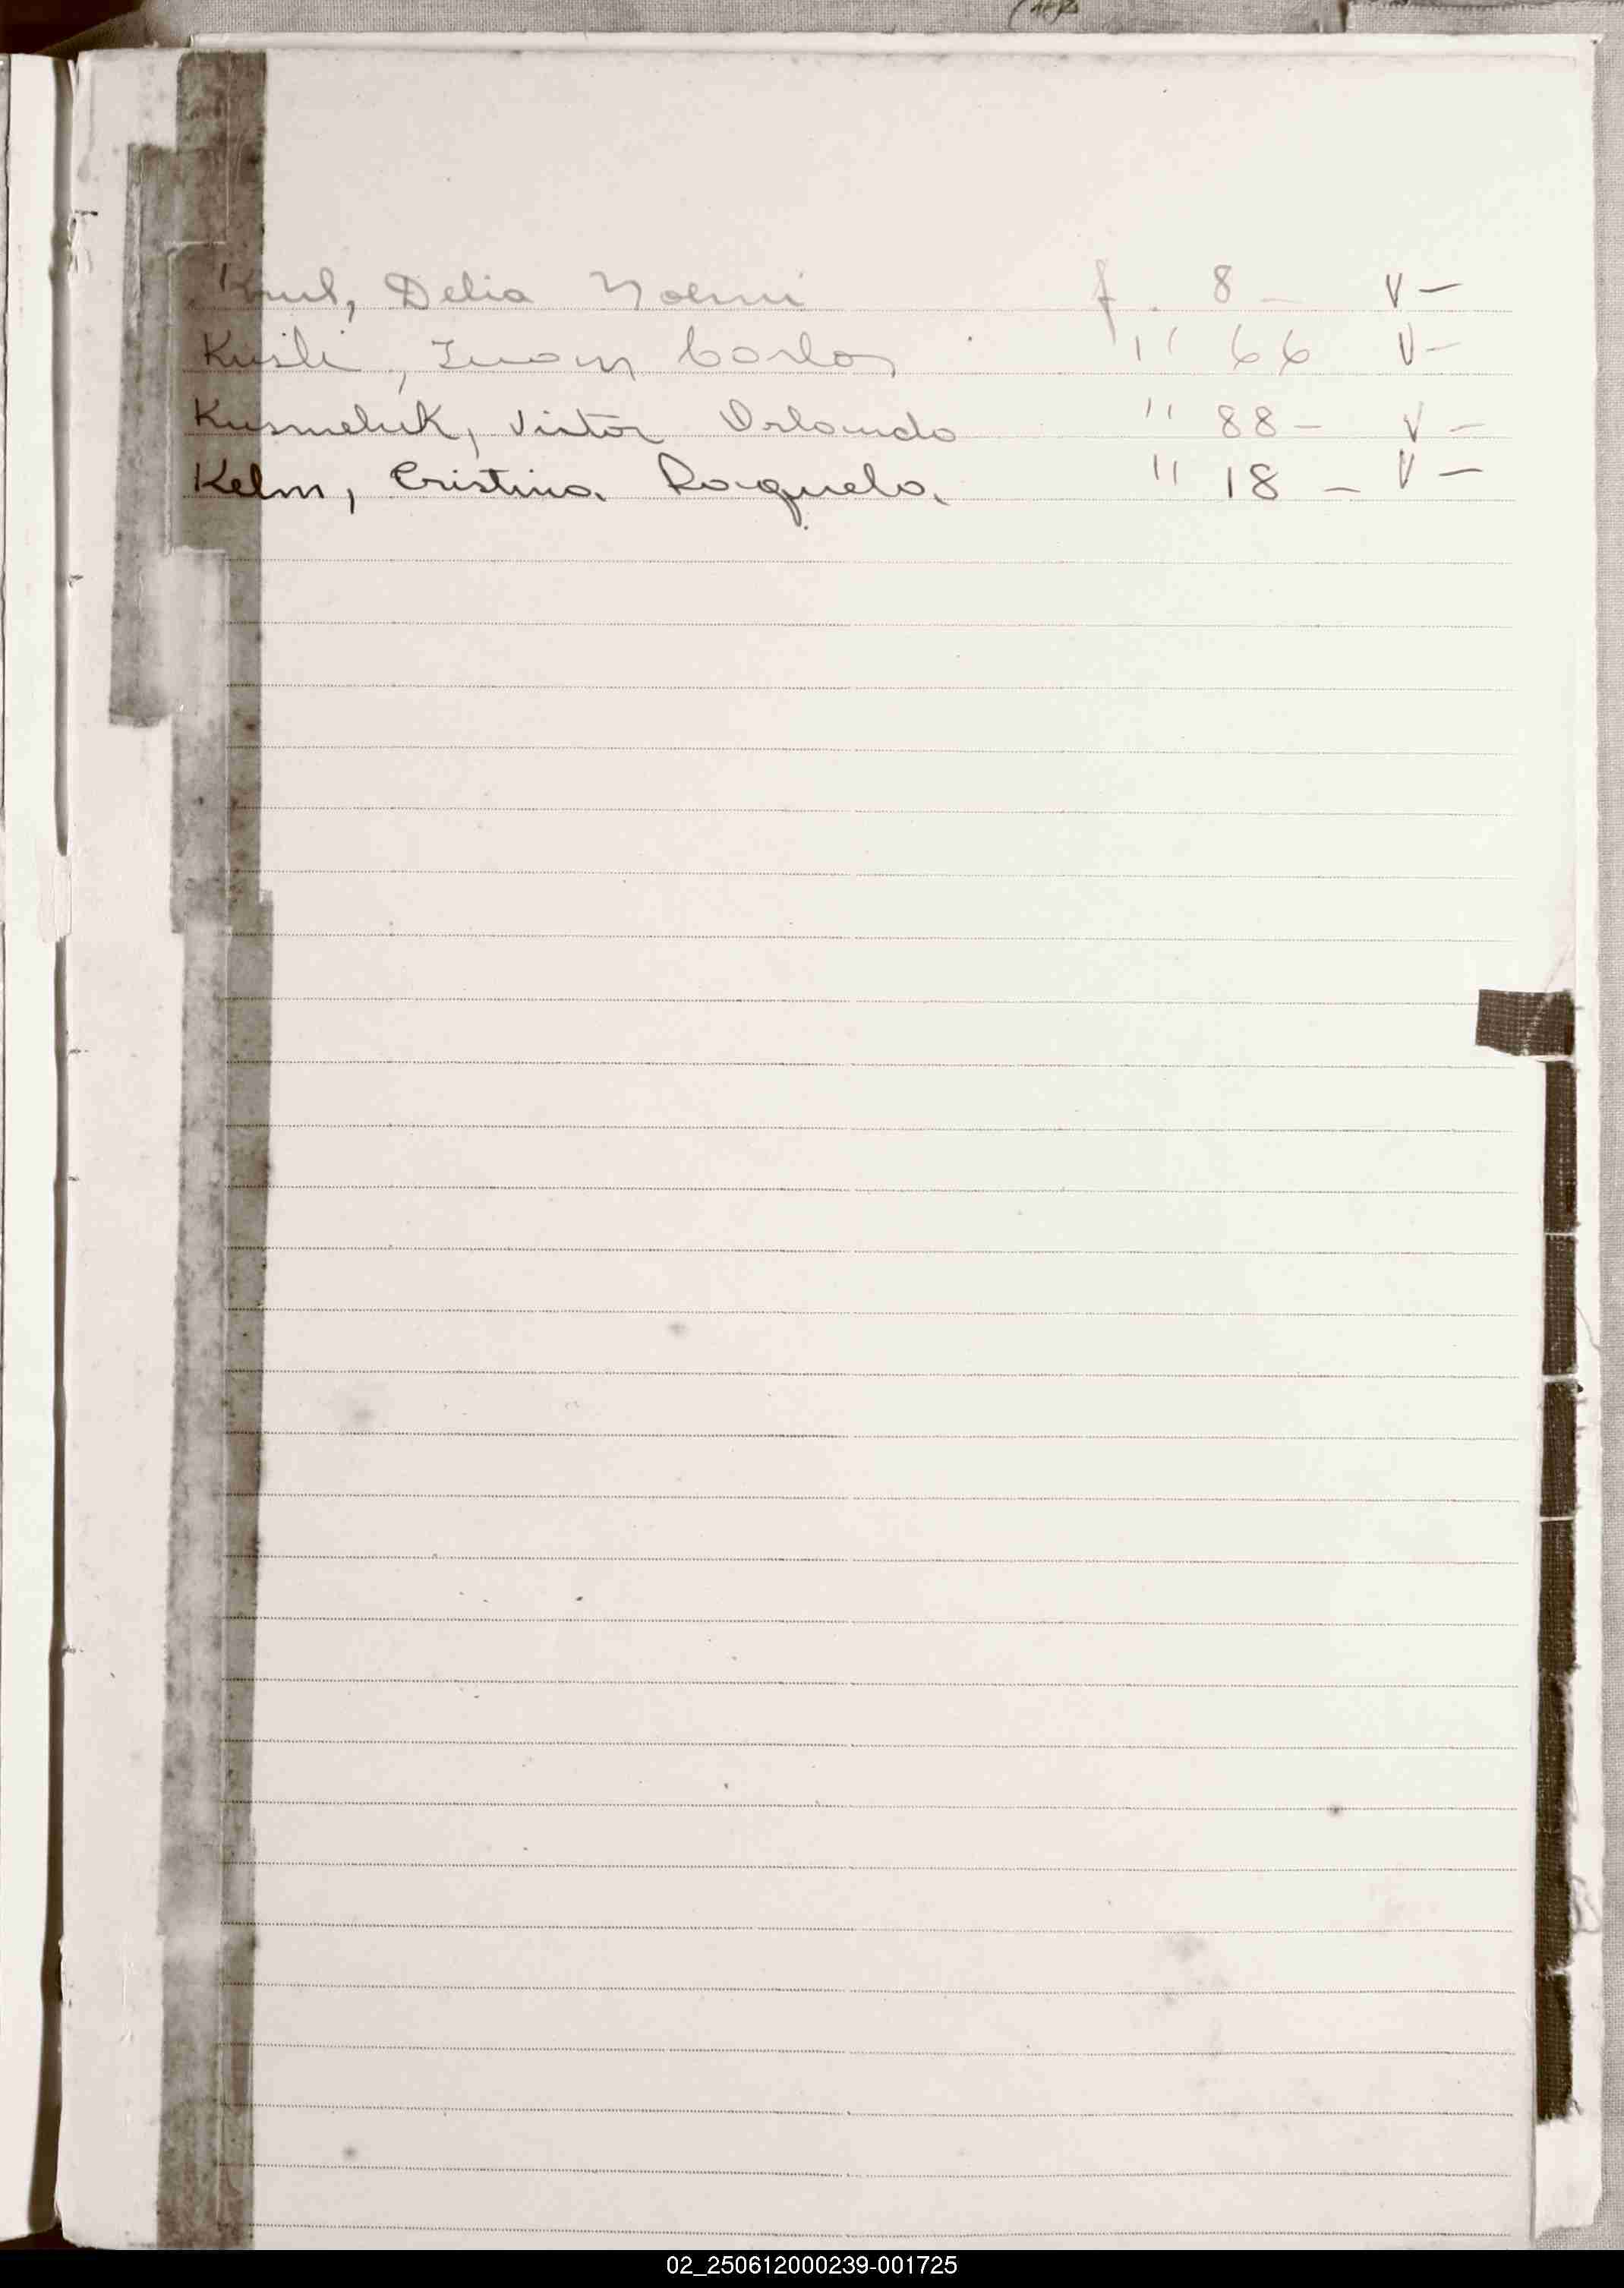 Krul, Delia Noemi f. 8 - V -
Kusli, Juan Carlos " 66 V -
Kusmeluk, Victor Orlando " 88 - V -
Kelm, Cristina Raquela. " 18 - V -
02_250612000239-001725